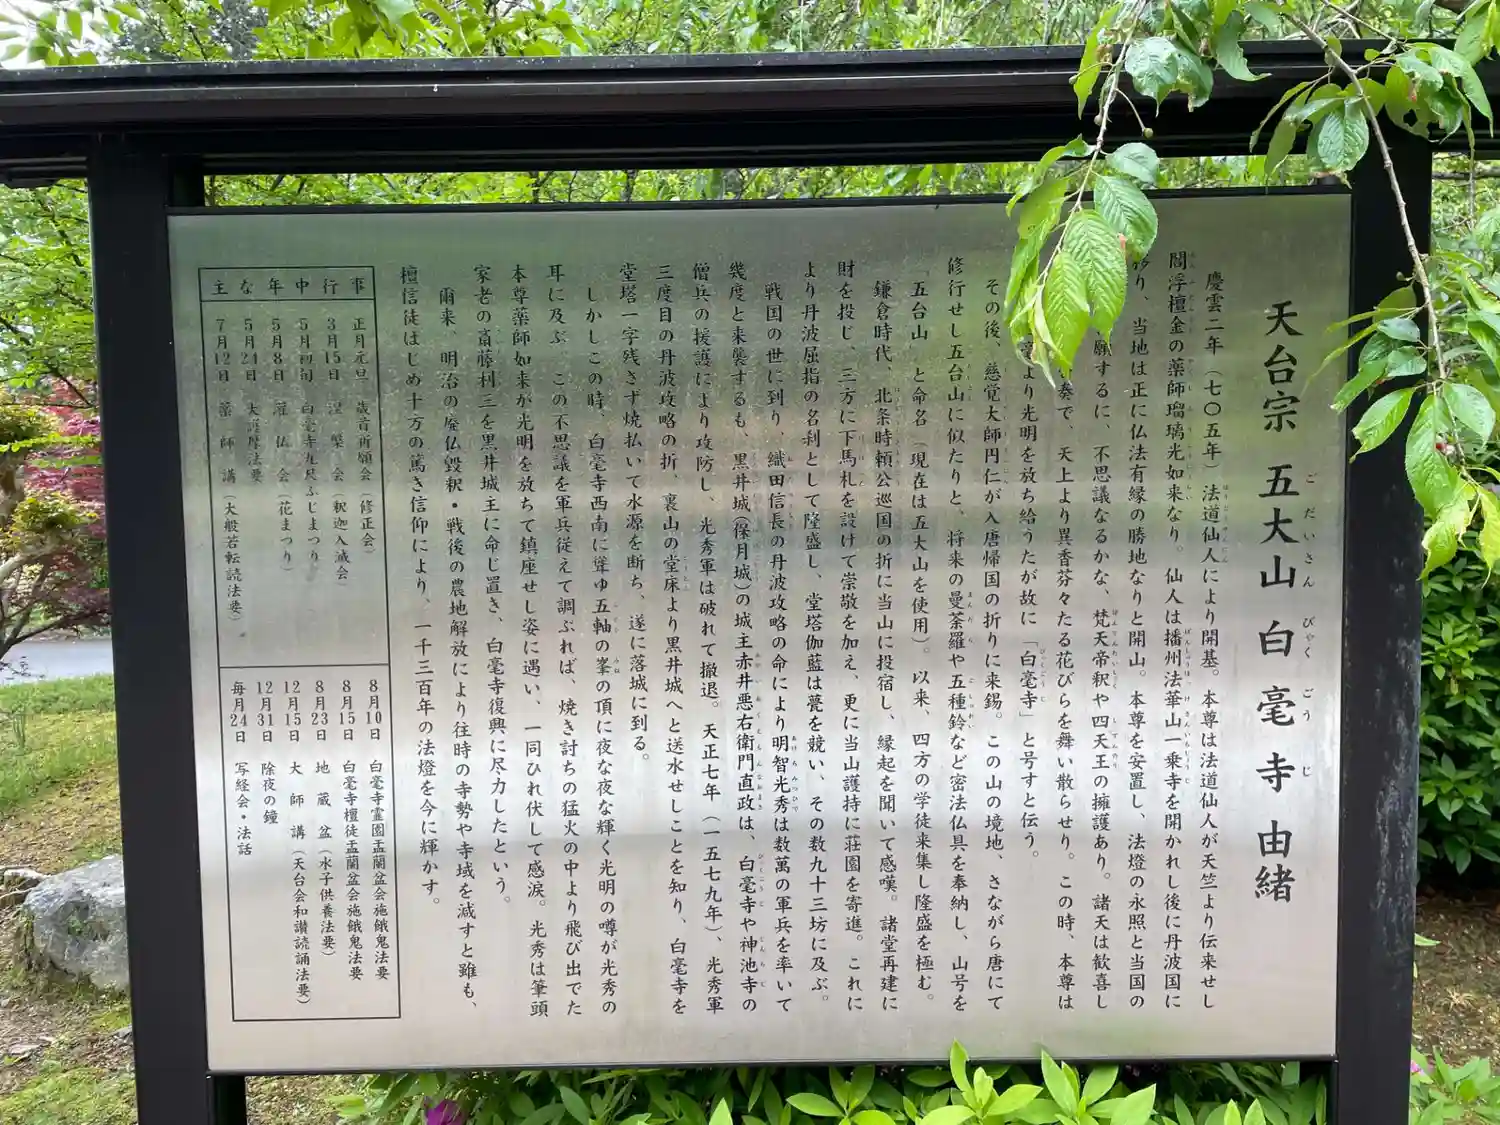 天台宗 五大山 白毫寺 由緒
慶雲二年(七〇五年)法道仙人により開基。本尊は法道仙人が天竺より伝来せし
閻浮檀金の薬師瑠璃光如来なり。仙人は播州法華山一乗寺を開かれし後に丹波国に
移り、当地は正に仏法有縁の勝地なりと開山。本尊を安置し、法燈の永照と当国の
願するに、不思議なるかな、梵天帝釈や四天王の擁護あり。諸天は歓喜し
奏で、天上より異香芬々たる花びらを舞い散らせり。この時、本尊は
より光明を放ち給うたが故に「白毫寺」と号すと伝う。
その後、慈覚大師円仁が入唐帰国の折りに来錫。この山の境地、さながら唐にて
修行せし五台山に似たりと、将来の曼荼羅や五種鈴など密法仏具を奉納し、山号を
「五台山」と命名(現在は五大山を使用)。以来、四方の学徒来集し隆盛を極む。
鎌倉時代、北条時頼公巡国の折に当山に投宿し、縁起を聞いて感嘆。諸堂再建に
財を投じ、三方に下馬札を設けて崇敬を加え、更に当山護持に荘園を寄進。これに
より丹波屈指の名刹として隆盛し、堂塔伽藍は甍を競い、その数九十三坊に及ぶ。
戦国の世に到り、織田信長の丹波攻略の命により明智光秀は数萬の軍兵を率いて
幾度と来襲するも、黒井城(保月城)の城主赤井悪右衛門直政は、白毫寺や神池寺の
僧兵の援護により攻防し、光秀軍は破れて撤退。天正七年(一五七九年)、光秀軍
三度目の丹波攻略の折、裏山の堂床より黒井城へと送水せしことを知り、白毫寺を
堂塔一字残さず焼払いて水源を断ち、遂に落城に到る。
しかしこの時、白毫寺西南に聳ゆ五軸の峯の頂に夜な夜な輝く光明の噂が光秀の
耳に及ぶ。この不思議を軍兵従えて調ぶれば、焼き討ちの猛火の中より飛び出でた
本尊薬師如来が光明を放ちて鎮座せし姿に遇い、一同ひれ伏して感涙。光秀は筆頭
家老の斎藤利三を黒井城主に命じ置き、白毫寺復興に尽力したという。
爾来、明治の廃仏毀釈・戦後の農地解放により往時の寺勢や寺域を減すと雖も、
檀信徒はじめ十方の篤き信仰により、一千三百年の法燈を今に輝かす。
主な年中行事
正月元旦 歳首祈願会(修正会)
3月15日 涅槃会(釈迦入滅会)
5月初旬 白毫寺九尺ふじまつり
5月8日 灌仏会(花まつり)
5月24日 大護摩法要
7月12日 薬師講(大般若転読法要)
8月10日 白毫寺霊園盂蘭盆会施餓鬼法要
8月15日 白毫寺檀徒盂蘭盆会施餓鬼法要
8月23日 地蔵盆(水子供養法要)
12月15日 大師講(天台会和讃読誦法要)
12月31日 除夜の鐘
毎月24日 写経会・法話